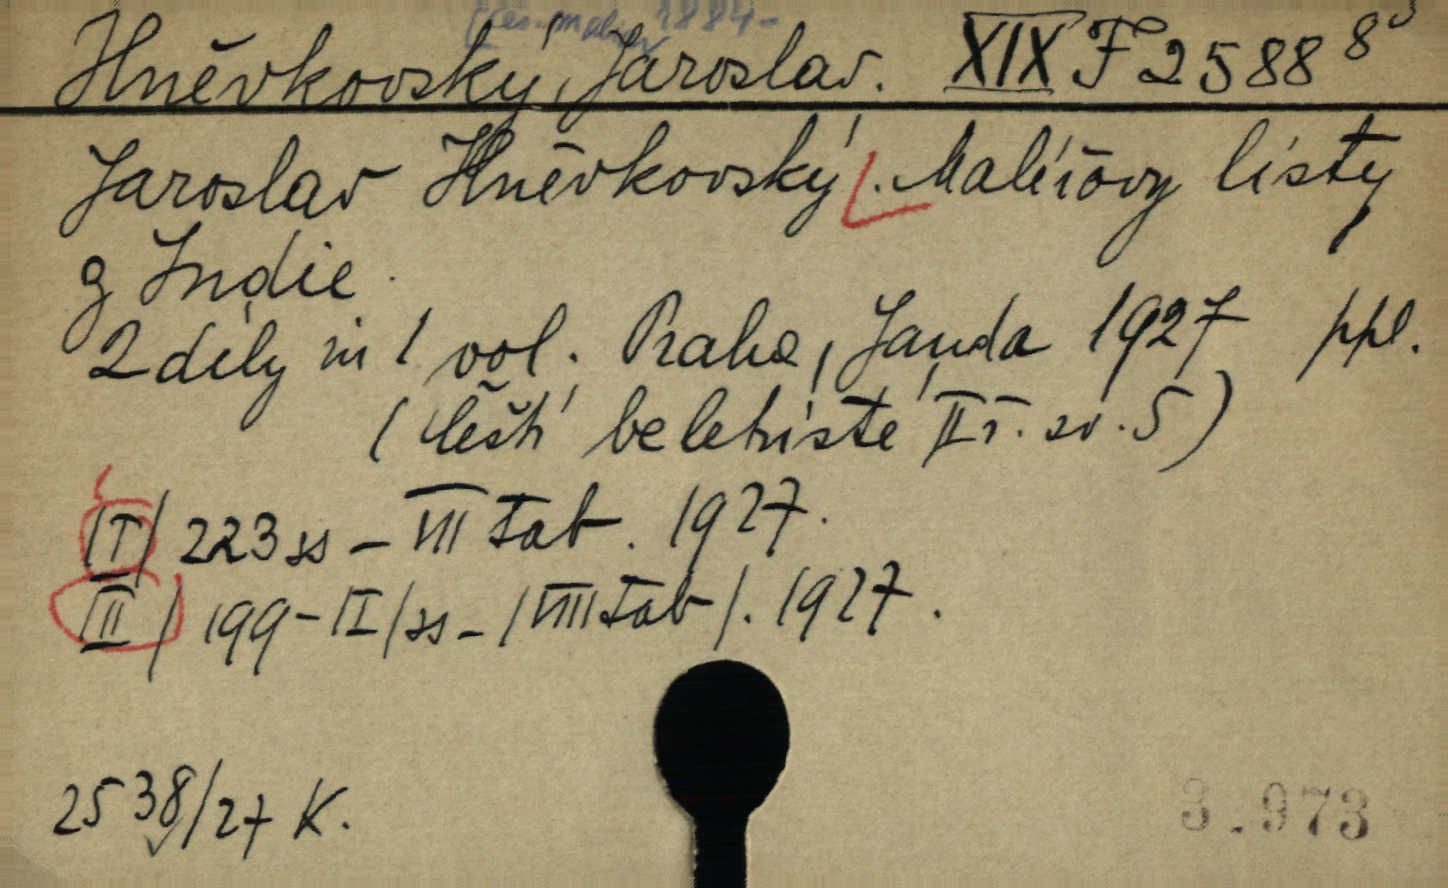 čes. malíř 1884-
Hněvkovský, Jaroslav. XIX F 2588 8°
Jaroslav Hněvkovský. Malířovy listy
z Indie.
2 díly in 1 vol. Praha, Janda 1927 ppl.
(Čeští beletristé II ř. sv. 5)
/I/ 223 ss - VIII tab. 1927.
/II/ 199 - II/ss - /VIII tab/. 1927.
2538/27 K.
3.973